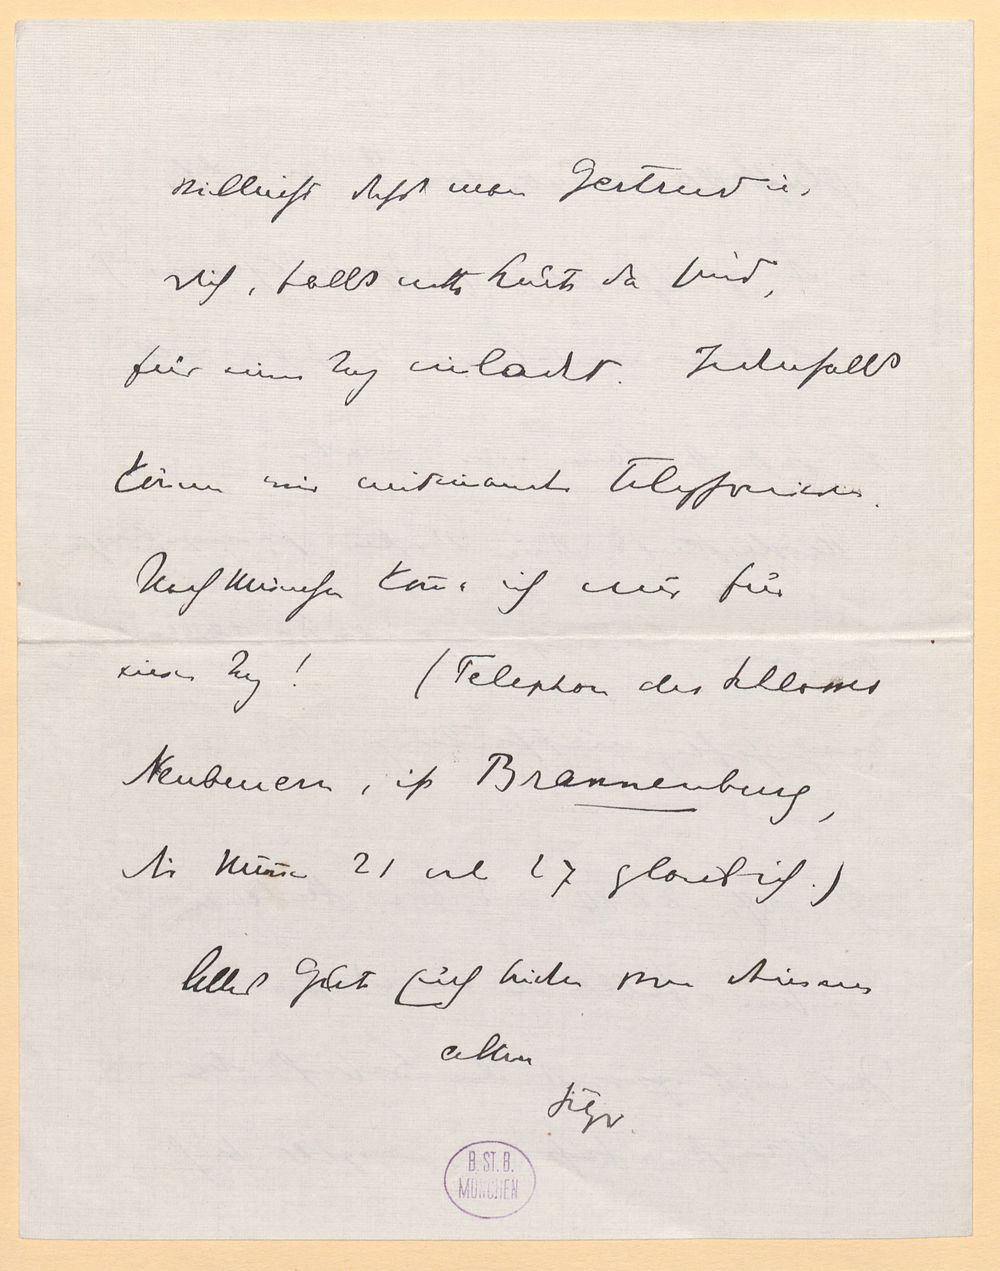 vielleicht dass man Gertrud u.
Dich, falls nette Leute da sind,
für einen Tag einladet. Jedenfalls
können wir miteinander telefonieren.
Nach München kom̄e ich nur für
einen Tag! (Telephon des Schlosses
Neubeuern, ist Brannenburg,
die Num̄er 21 oder 27 glaub ich.)
Alles Gute Euch beiden von Deinem
alten
B. ST. B.
MÜNCHEN